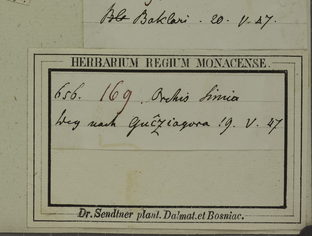 Baklari . 20. V. 47.
HERBARIUM REGIUM MONACENSE.
656. 169 Orchis Simia
Weg nach Gučziagora 19. V. 47
Dr. Sendtner plant. Dalmat. et Bosniac.